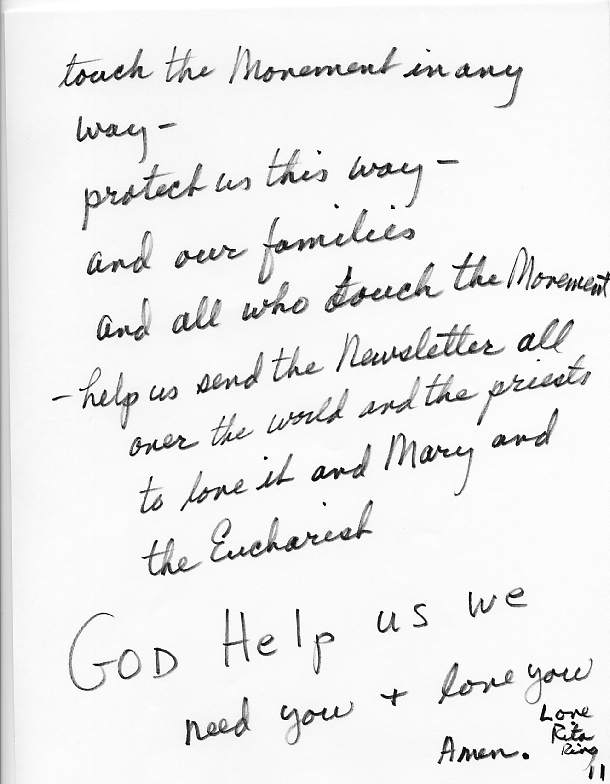 touch the Movement in any
way –
protect us this way –
and our families
and all who touch the Movement
– help us send the Newsletter all
over the world and the priests
to love it and Mary and
the Eucharist
GOD Help us we
need you + love you
Love
Rita
Ring
Amen.
11